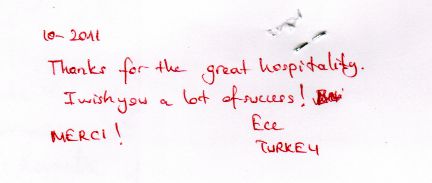 10-2011
Thanks for the great hospitality.
I wish you a lot of success!
MERCI!
Ece
TURKEY